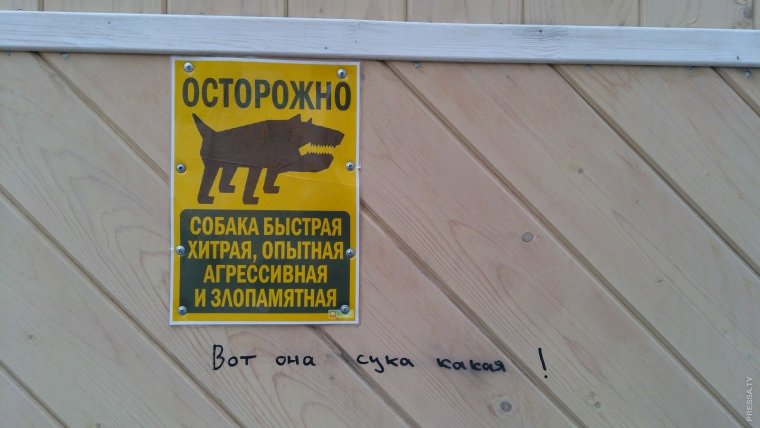 ОСТОРОЖНО
СОБАКА БЫСТРАЯ
ХИТРАЯ, ОПЫТНАЯ
АГРЕССИВНАЯ
И ЗЛОПАМЯТНАЯ
Вот она сука какая !
PRESSA.TV